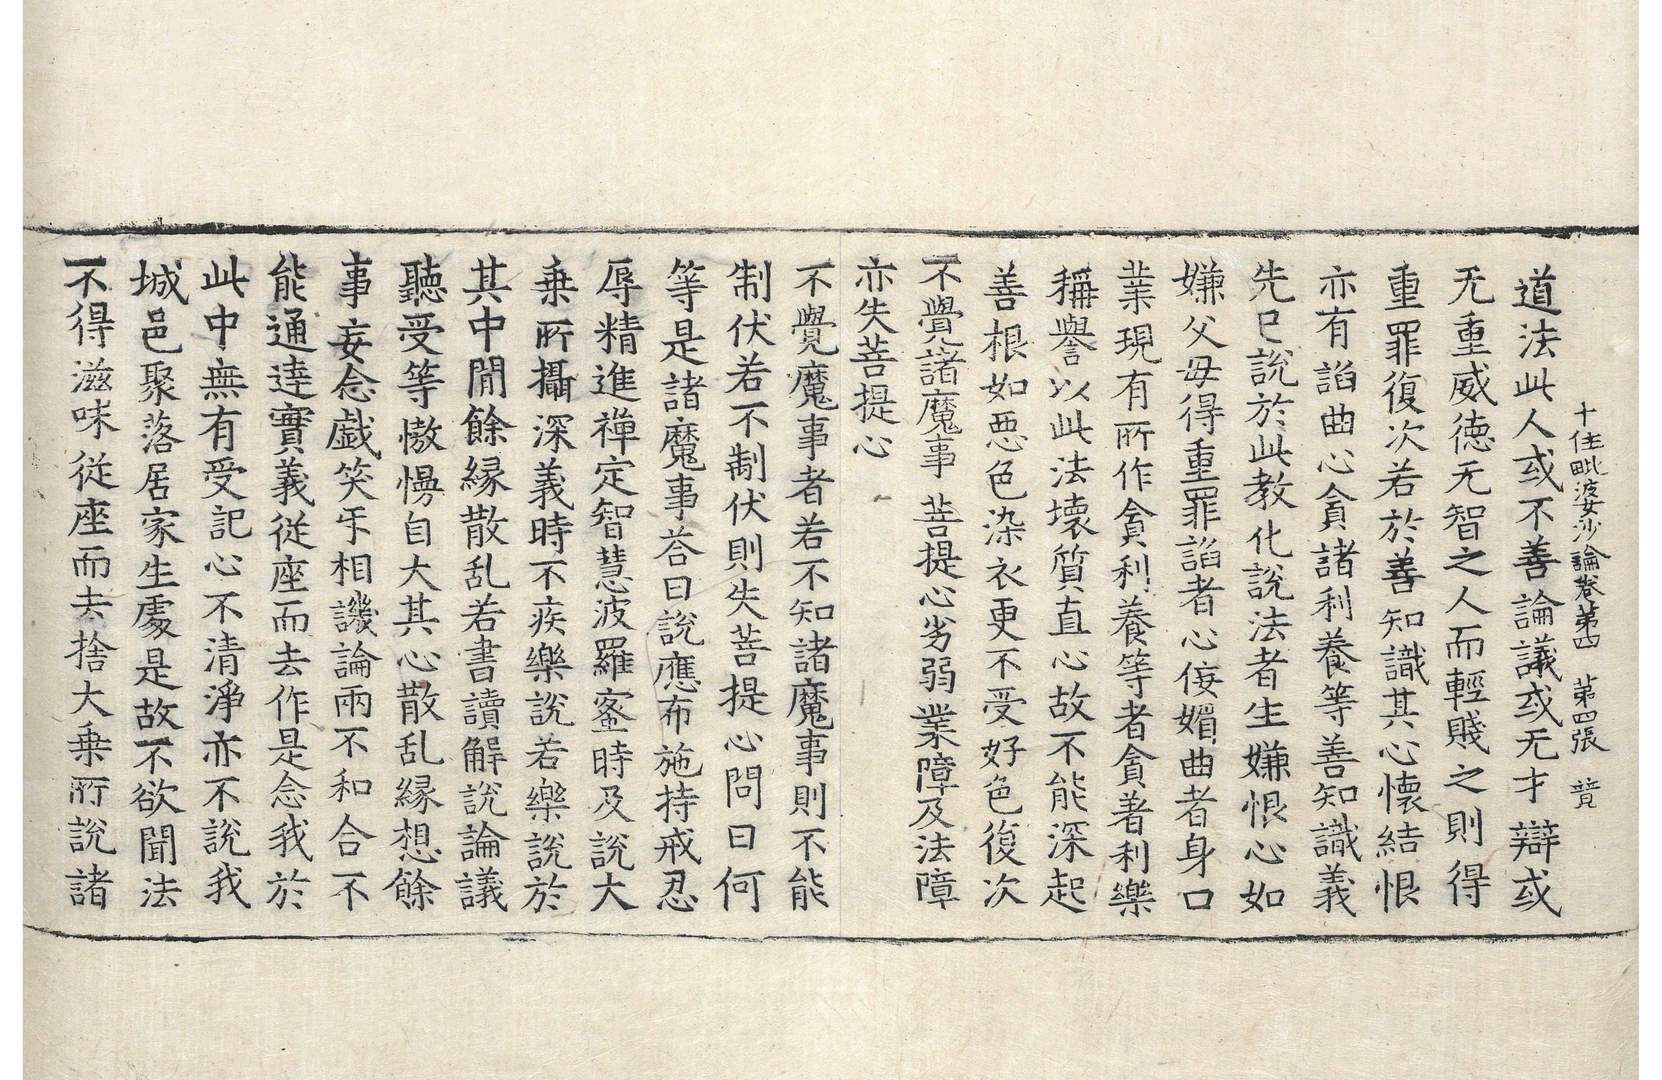 十住毗婆沙論卷第四　第四張　贊
道法此人或不善論議或无才辯或
无重威德无智之人而輕賤之則得
重罪復次若於善知識其心懷結恨
亦有諂曲心貪諸利養等善知識義
先已說於此教化說法者生嫌恨心如
嫌父母得重罪諂者心侫媚曲者身口
業現有所作貪利養等者貪著利樂
稱譽以此法壞質直心故不能深起
善根如惡色染衣更不受好色復次
不覺諸魔事　菩提心劣弱業障及法障
亦失菩提心
不覺魔事者若不知諸魔事則不能
制伏若不制伏則失菩提心問曰何
等是諸魔事荅曰說應布施持戒忍
辱精進禪定智慧波羅蜜時及說大
乗所攝深義時不疾樂說若樂說於
其中閒餘緣散乱若書讀解說論議
聽受等慠慢自大其心散乱緣想餘
事妄念戱笑乎相譏論兩不和合不
能通達實義從座而去作是念我於
此中無有受記心不清淨亦不說我
城邑聚落居家生處是故不欲聞法
不得滋味從座而去捨大乗所說諸